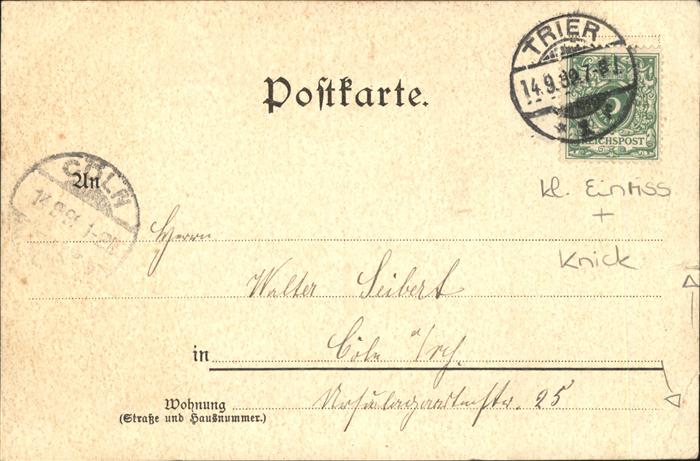 TRIER
14.9.99.7-8V.
* 1 *
5
REICHSPOST
Postkarte.
CÖLN
14.9.99 1-2N
An
kl. Einriss
+
Knick
Herrn
Walter Seibert
in Cöln a/rh.
Wohnung Ursulagartenstr. 25
(Straße und Hausnummer.)